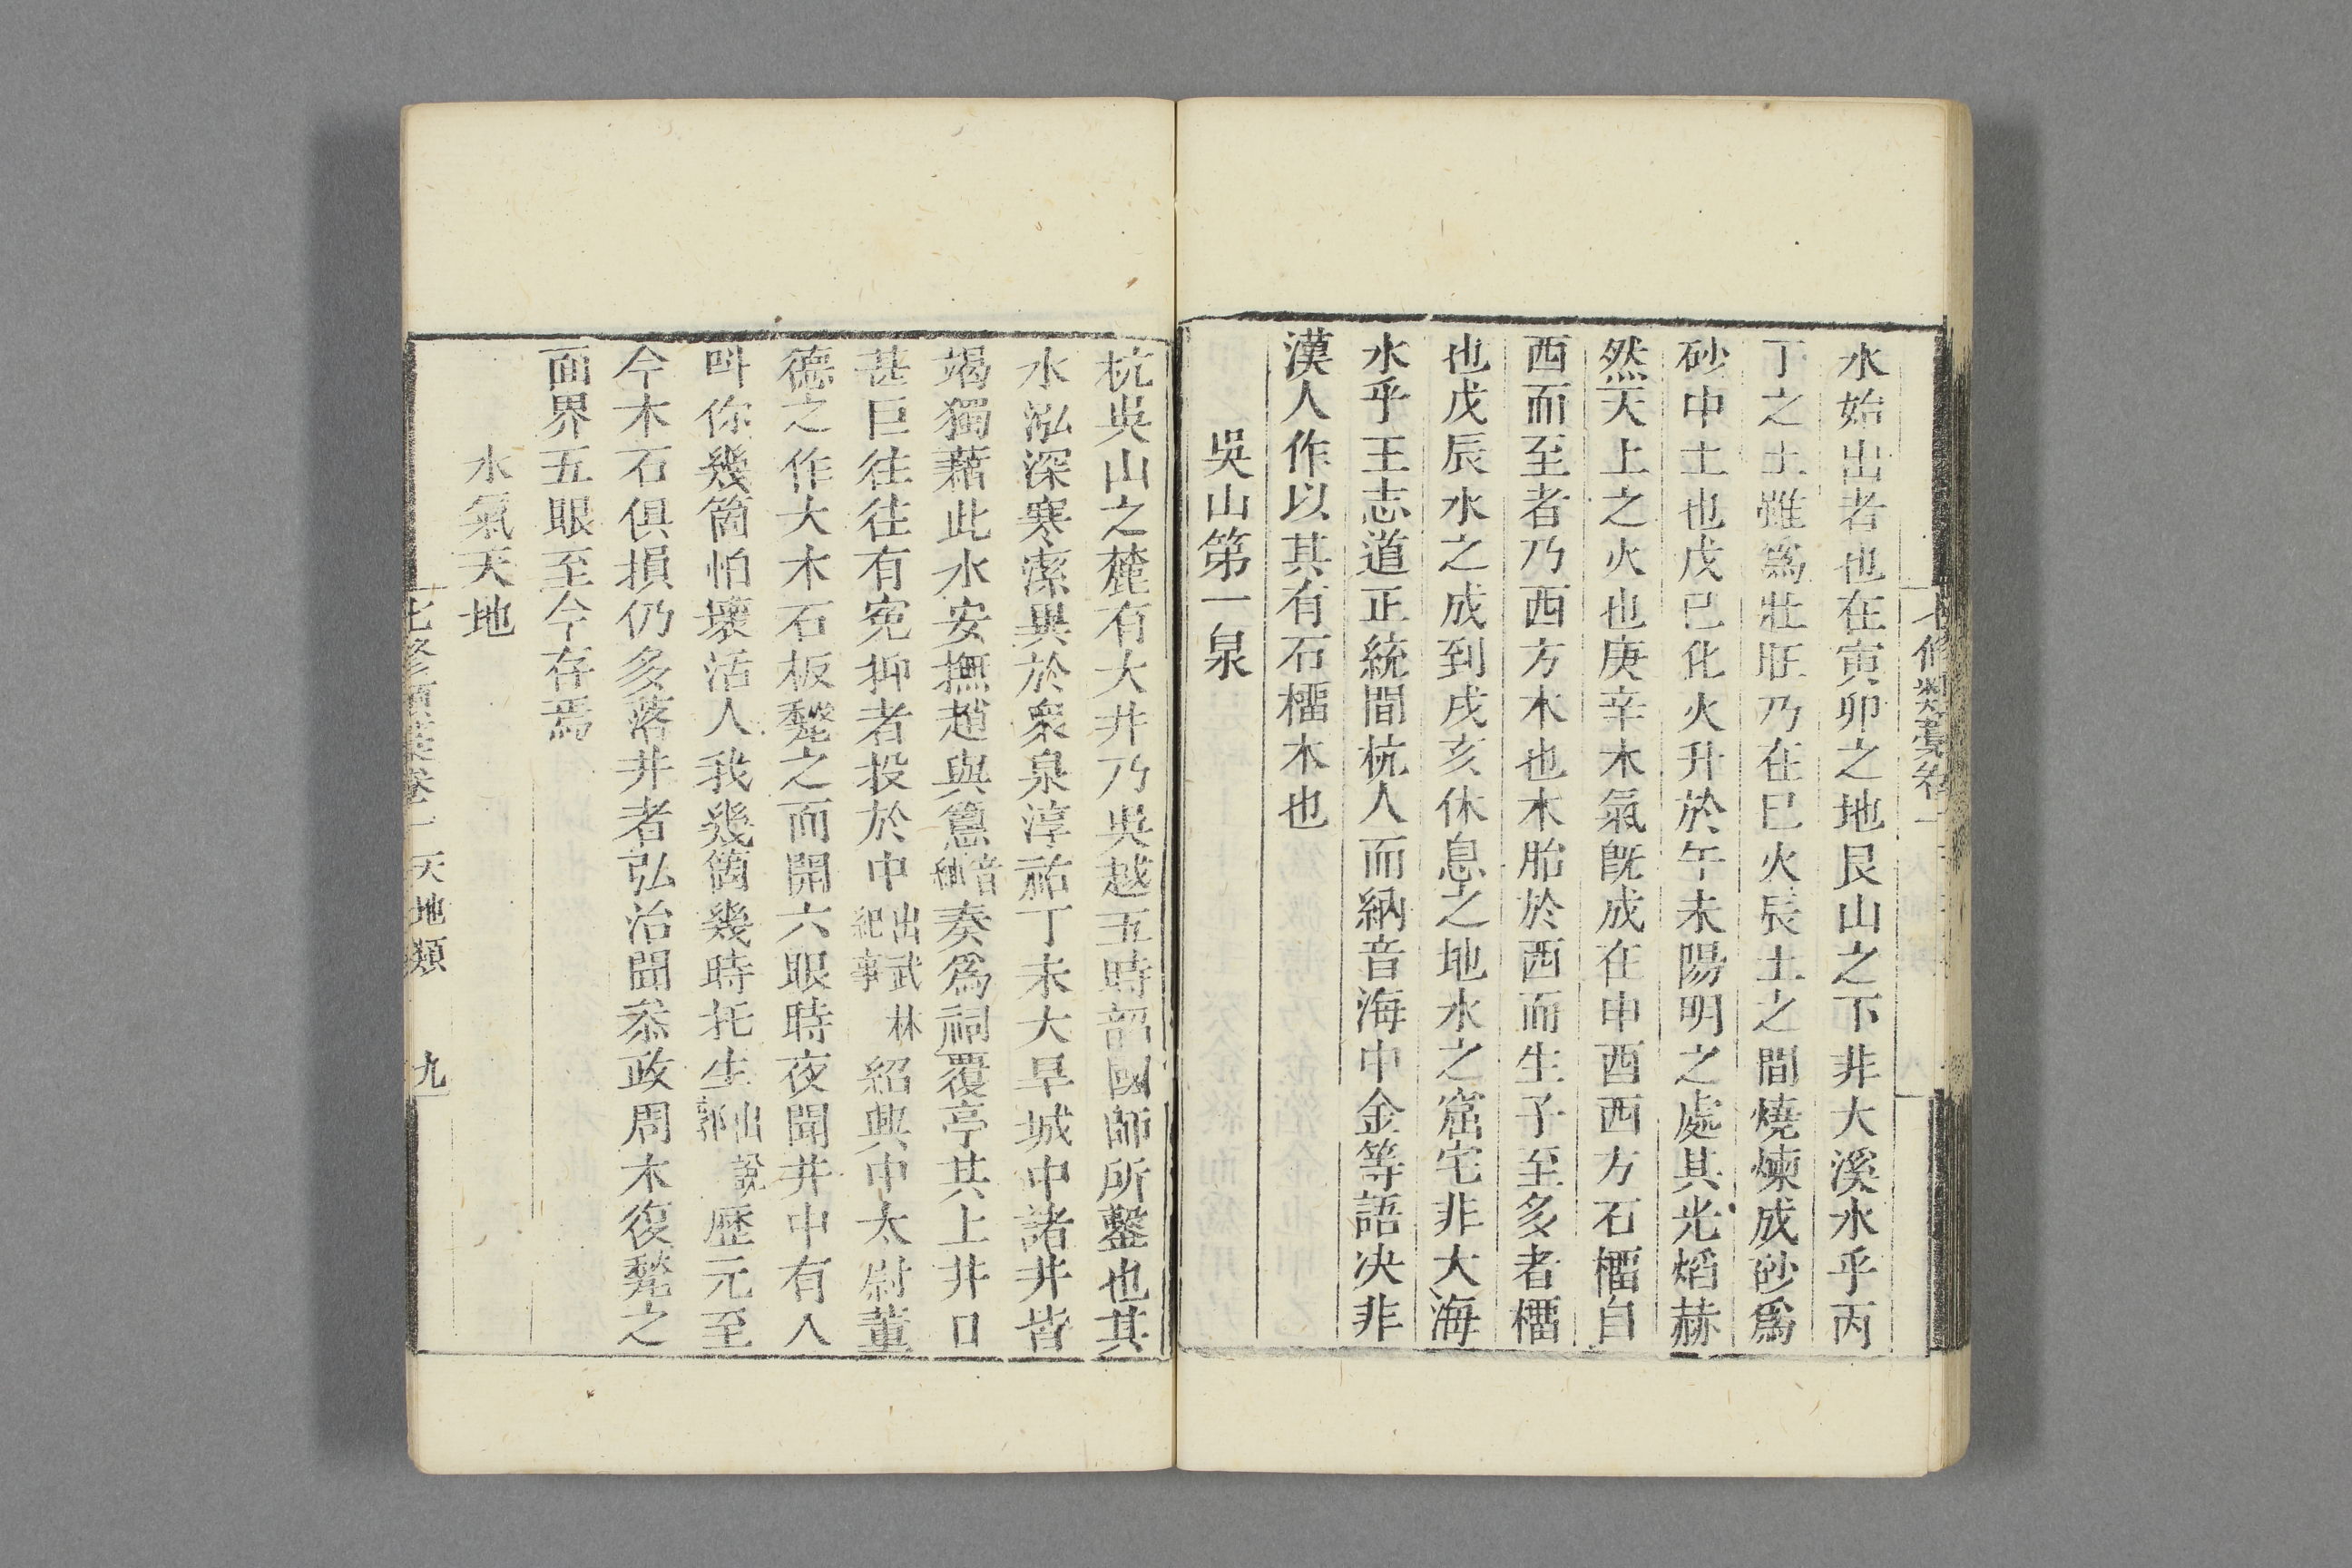 七修類藁卷一
水始出者也在寅卯之地艮山之下非大溪水乎丙
丁之土雖爲壯旺乃在巳火辰土之間燒煉成砂爲
砂中土也戊巳化火升於午未陽明之處其光熖赫
然天上之火也庚辛木氣旣成在申酉西方石橊自
西而至者乃西方木也木胎於酉而生子至多者橊
也戊辰水之成到戌亥休息之地水之窟宅非大海
水乎王志道正統間杭人而納音海中金等語决非
漢人作以其有石橊木也
吳山第一泉
杭吳山之麓有大井乃吳越五時韶國師所鑿也其
水泓深寒潔異於衆泉淳祐丁未大旱城中諸井皆
竭獨藉此水安撫趙與𥲅奏爲祠覆亭其上井口
甚巨往往有寃抑者投於中出武林紀事紹興中太尉董
德之作大木石板甃之而開六眼時夜聞井中有人
呌你幾箇怕壞活人我幾箇幾時托生出說郛歷元至
今木石俱損仍多落井者弘治間叅政周木復甃之
面界五眼至今存焉
水氣天地
七修類藁卷一 天地類 九